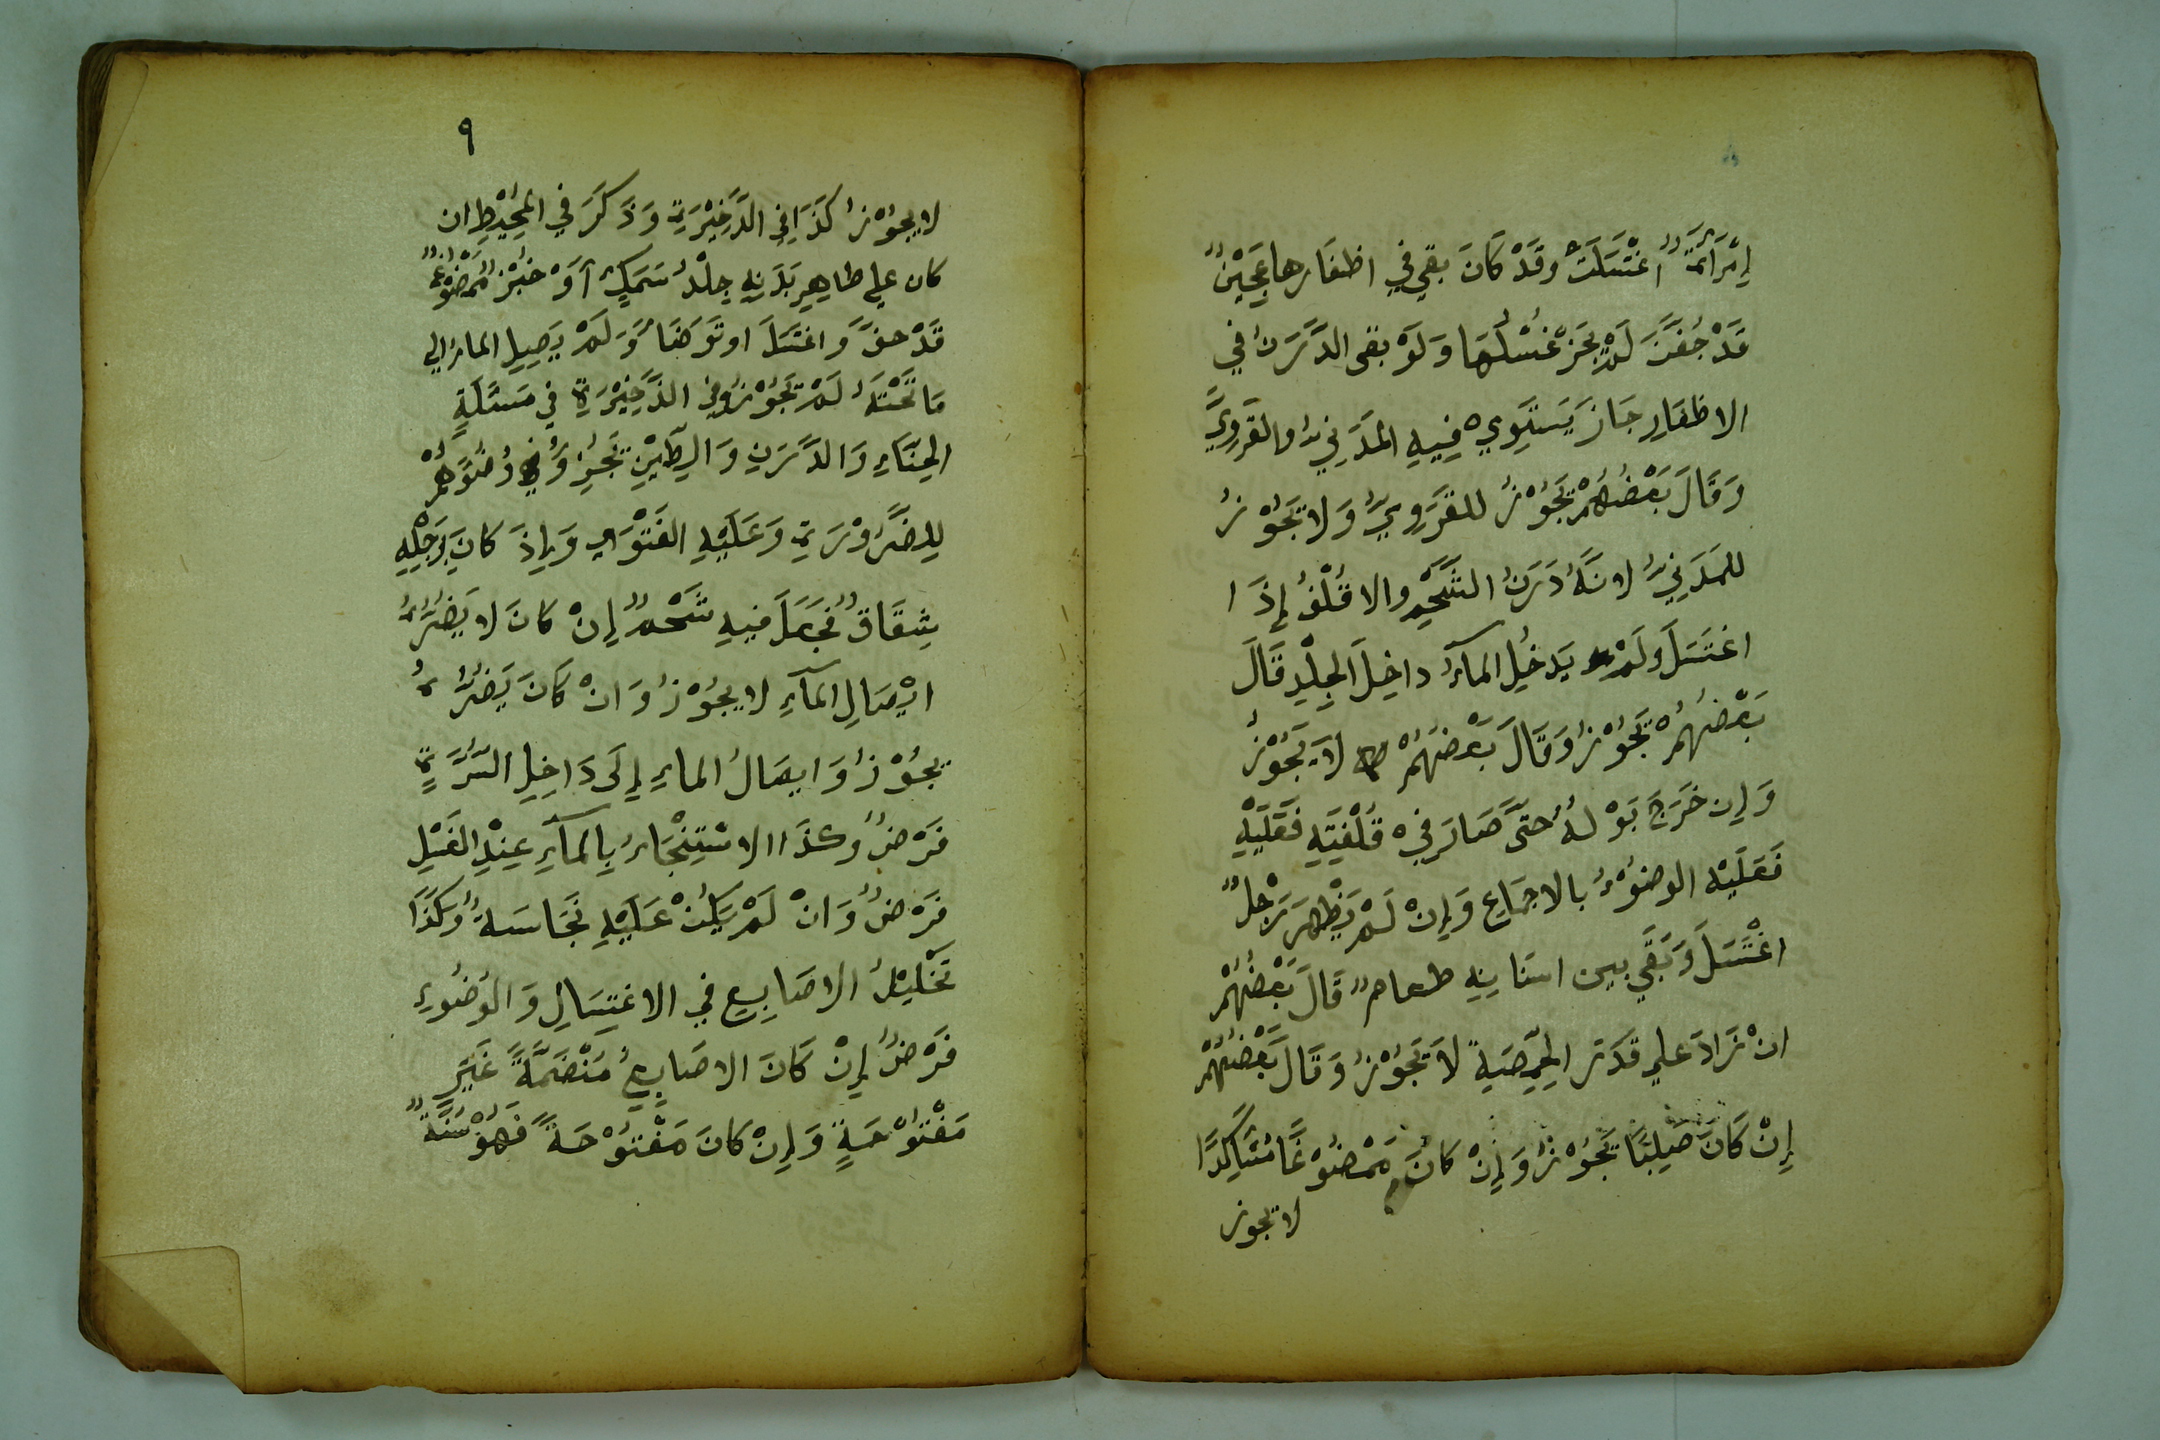 إِمْرَأَةٌ اغْتَسَلَتْ وقَدْ كَانَ بقي في اظفَارها عَجِيْنٌ
قَدْ جُفَّتَ لَمْ يَجُزْ غُسْلُهَا وَلَوْ بقى الدَّرَنُ في
الاظفَارِ جَازَ يَسْتَوِي فِيهِ المَدَنِيُّ والقَرَوِيُّ
وَقَالَ بَعْضُهُمْ يَجُوْزُ للقَرَوِيِّ وَلا يَجُوْزُ
للمَدَنِيِّ لانَّهُ دَرَنُ الشَّحْمِ والاقْلُفُ إِذَا
اغتَسَلَ وَلَمْ يَدخُلِ المآءُ داخِلَ الجِلْدِ قَالَ
بَعْضُهُمْ يَجُوْزُ وَقَالَ بَعْضُهُمْ لاَ يَجُوْزُ
وَإِن خَرَجَ بَوْلهُ حتَّى صَارَ في قُلْفَتِهِ فَعَلَيْهِ
فَعَلَيْهِ الوضوْءُ بالاجمَاعِ وَإِنْ لَمْ يَظْهَر رَجْلٌ
اغْتَسَلَ وَبَقَي بين اسنانِهِ طعامٌ قَالَ بَعْضُهُمْ
انْ زَادَ علي قَدَرِ الحِمِّصَةِ لاَ يَجُوْزُ وَقَالَ بَعْضُهُمْ
إِنْ كَانَ صَلِبًا يَجُوْزُ وَإِنْ كَانَ مَمْضُوْغًا مُتَأَكِّدًا
لا يجوز
٩
لا يجُوْزُ كَذَا فِي الذَّخِيْرَةِ وَذَكَرَ في المُحِيْطِ ان
كان علي ظاهِرِ بَدَنِهِ جِلْدُ سَمَكٍ أَوْ خبْزٌ مَمْضُوْغٌ
قَدْ جفَّ وَاغتَسَلَ او تَوَضَأَ وَلَمْ يَصِلِ الماءُ الي
مَا تَحْتَهُ لَمْ يَجُوْزُ وفِي الذَّخِيْرَةِ في مَسْئَلَةٍ
الحِنّاءِ وَالدَّرَنِ وَالطِّيْنِ يَجُزِ وُضُوْءُهُمْ
لِلضَّرُوْرَةِ وَعَلَيْهِ الفَتْوَي وَإِذَ كَانَ بِرَجْلِهِ
شِقَاقٌ فَجَعَلَ فيهِ شَحْمٌ إِنْ كَانَ لا يَضُرُّهُ
ايْصَالِ المآءِ لا يجُوْزُ وَانْ كَانَ يَضُرُّهُ
يجُوْزُ وَايصَالُ الماءِ إِلَى دَاخِلِ السُّرَّةِ
فَرْضٌ وكذَا الاسْتِنْجَاءُ بِالمآءِ عِنْدِ الغَسْلِ
فَرْضٌ وَانْ لَمْ يَكُنْ عَلَيْهِ نَجَاسَةٌ وَكَذَا
تَخْلِيْلُ الاصَابِعِ في الاغتِسَالِ وَالوُضُوءِ
فَرْضٌ إِنْ كَانَ الاصَابِعُ مَنْضَمَّةً غَيْرِ
مَفْتُوْحَةٍ وَإِنْ كَانَ مَفْتُوْحَةً فَهُوْ سُنَّةٌ